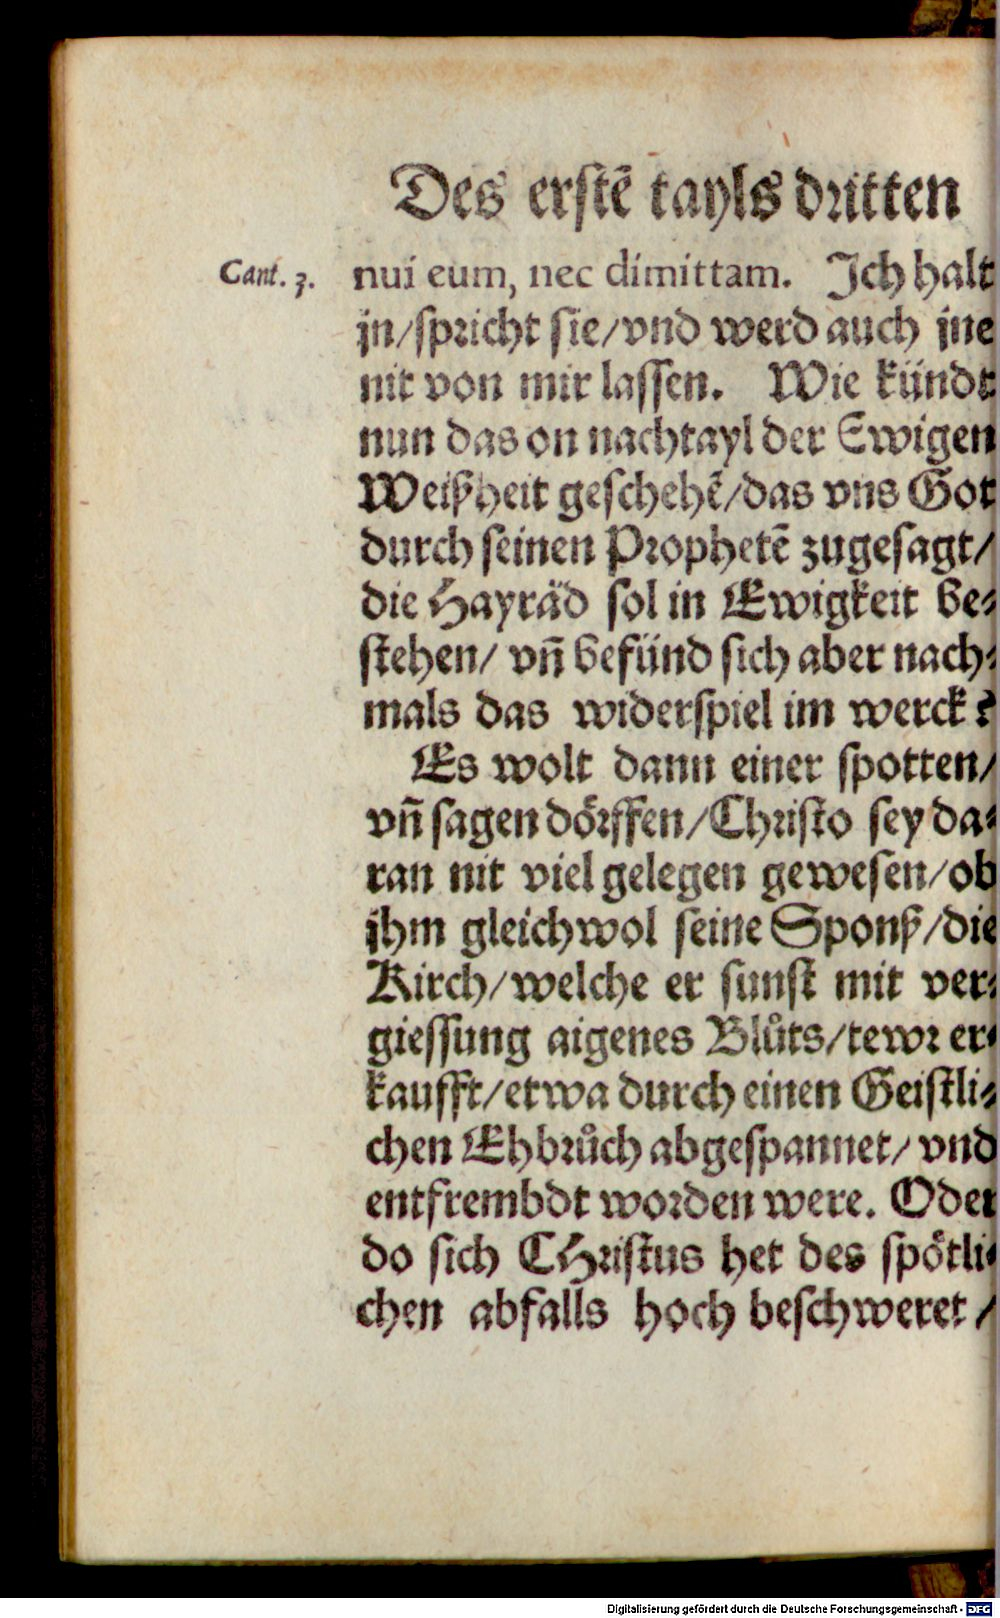 Des erstẽ tayls dritten
Cant. 3.
nui eum, nec dimittam. Ich halt
jn/spricht sie/vnd werd auch jne
nit von mir lassen. Wie kündt
nun das on nachtayl der Ewigen
Weißheit geschehẽ/das vns Got
durch seinen Prophetẽ zugesagt/
die Hayräd sol in Ewigkeit be⸗
stehen/ vñ befünd sich aber nach⸗
mals das widerspiel im werck?
Es wolt dann einer spotten/
vñ sagen dörffen/Christo sey da⸗
ran nit viel gelegen gewesen/ob
jhm gleichwol seine Sponß/die
Kirch/welche er sunst mit ver⸗
giessung aigenes Blůts/tewr er⸗
kaufft/etwa durch einen Geistli⸗
chen Ehbrůch abgespannet/ vnd
entfrembdt worden were. Oder
do sich CHristus het des spötli⸗
chen abfalls hoch beschweret/
Digitalisierung gefördert durch die Deutsche Forschungsgemeinschaft - DFG